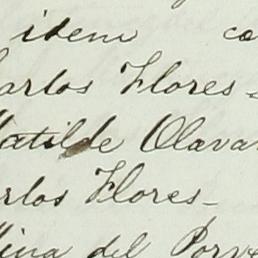 idem co
arlos Flores -
Matilde Olava
rlos Flores -
lina del Porve